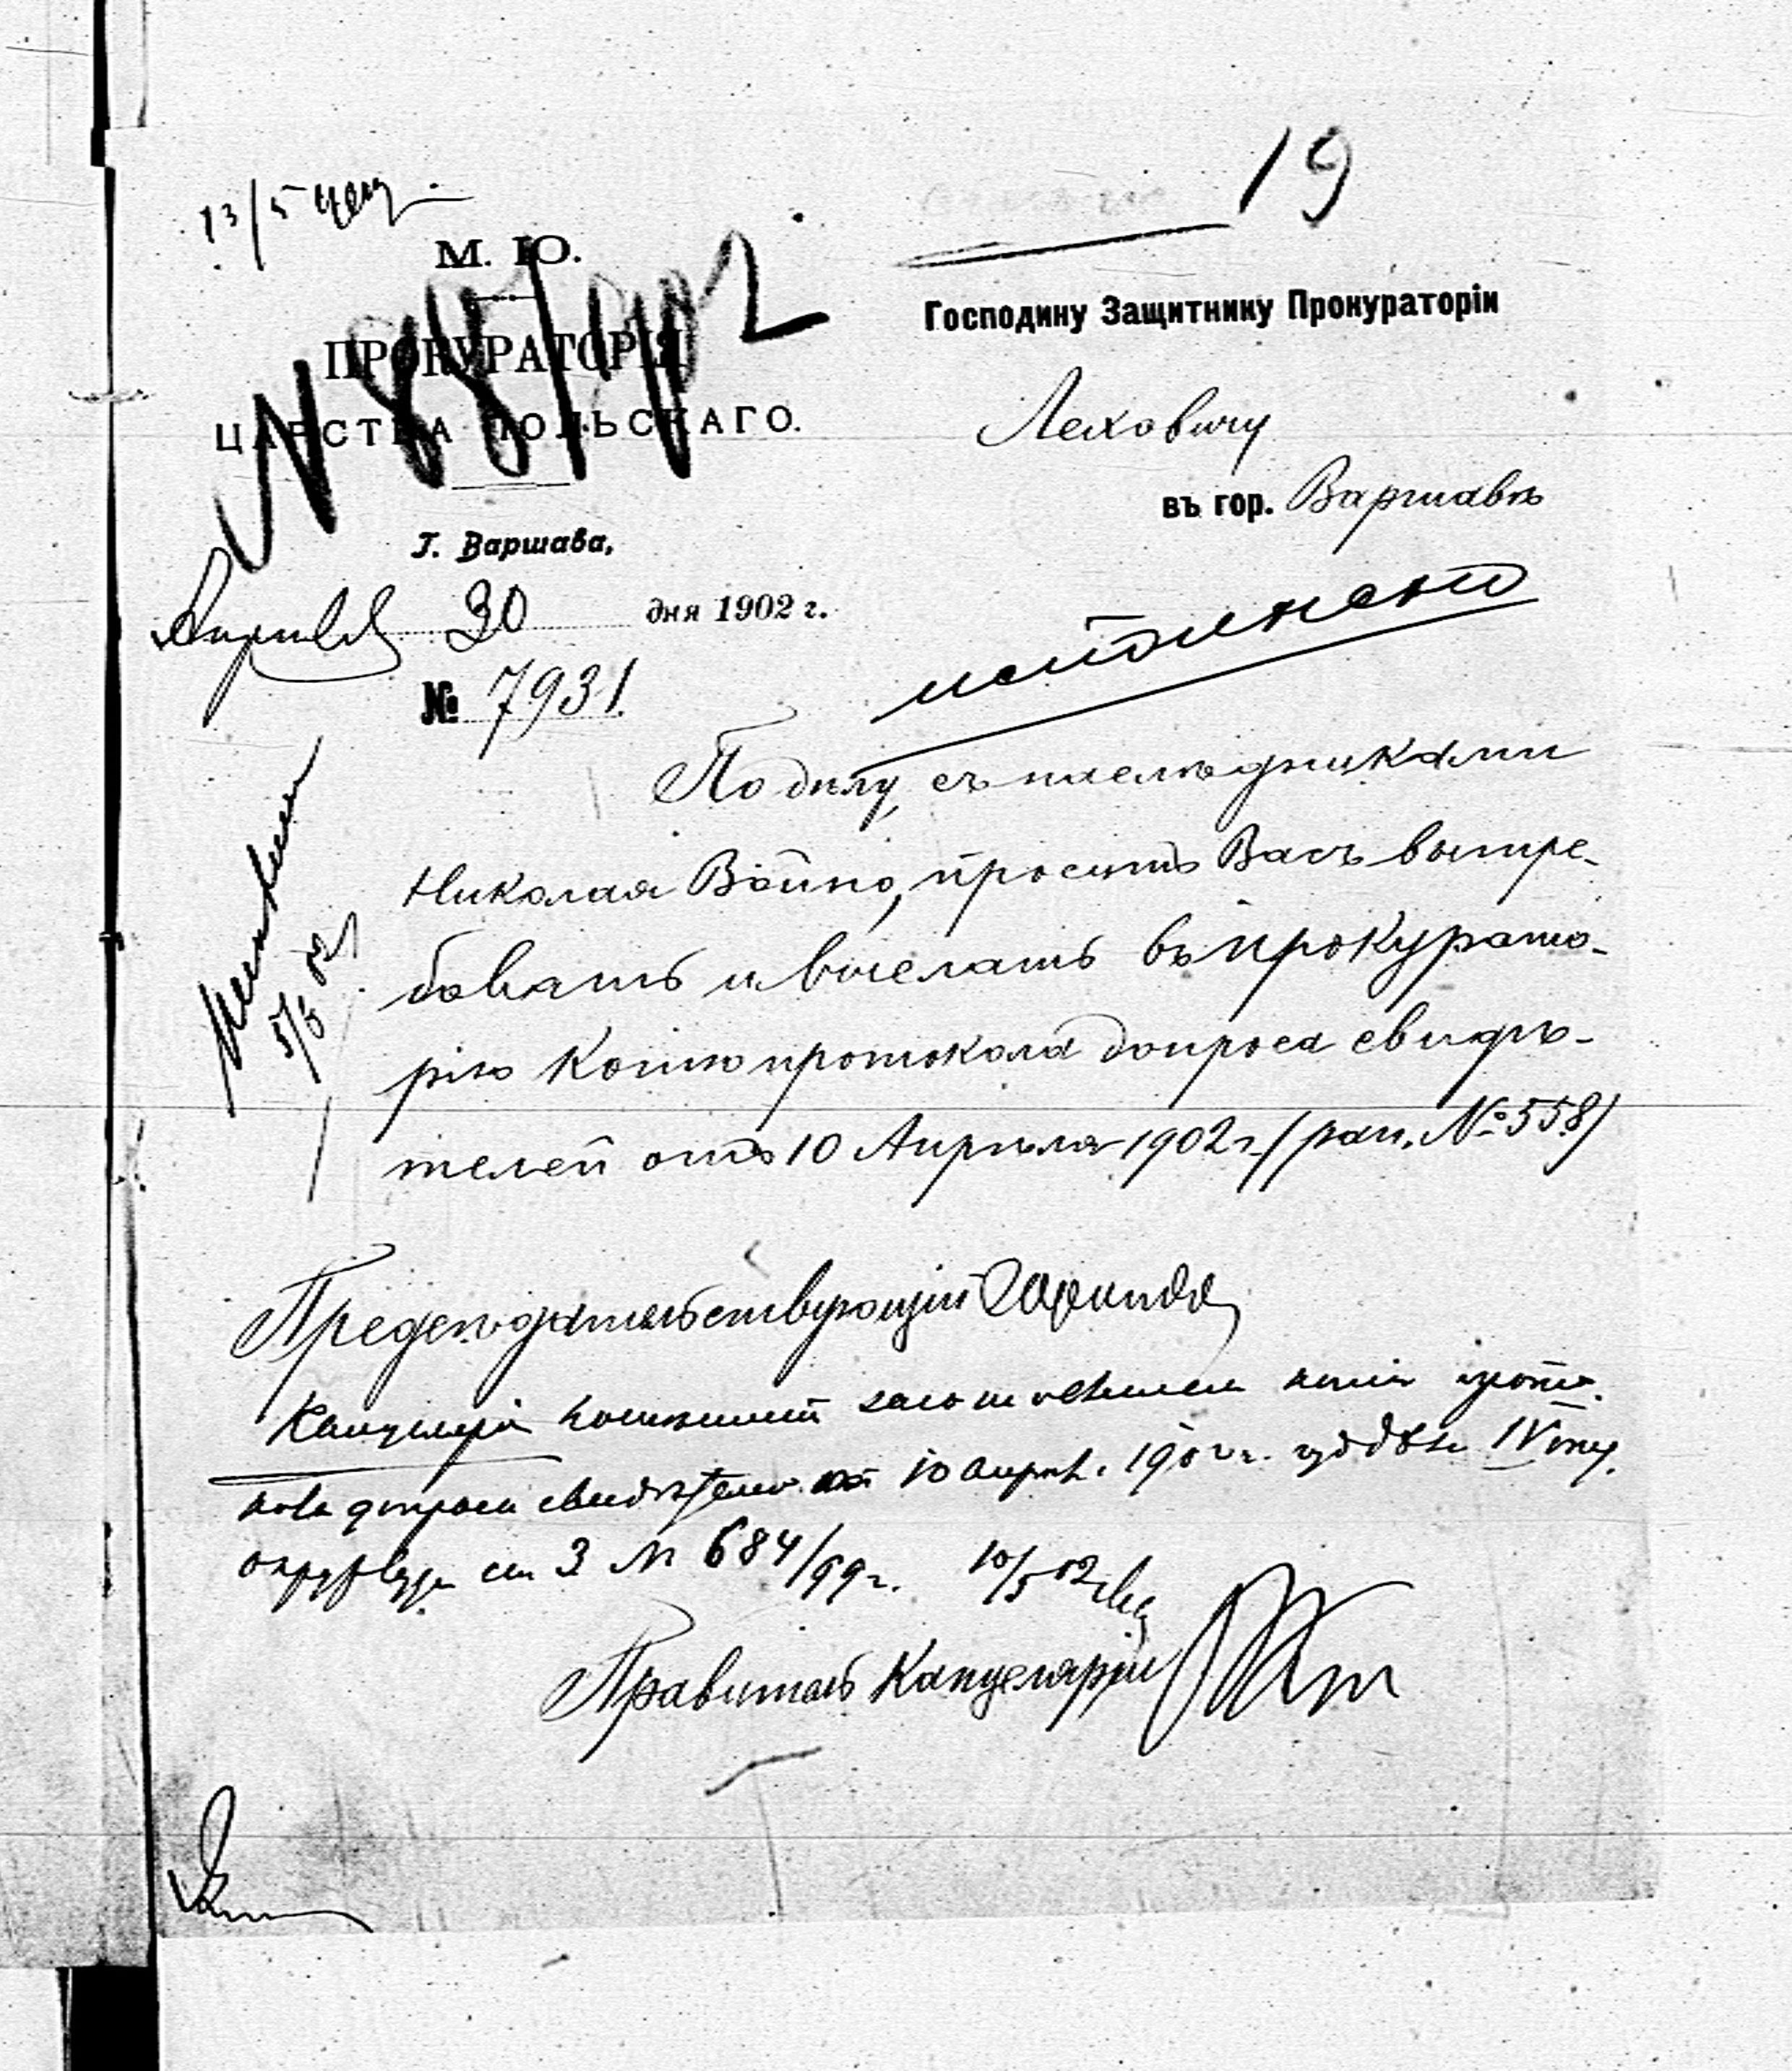 19
13/5
М. Ю.
ПРОКУРАТОРІЯ
ЦАРСТВА ПОЛЬСКАГО.
N 88/1902
Г. Варшава,
Апрѣля 30 дня 1902 г.
№ 7931.
Господину Защитнику Прокураторіи
Леховичу
въ гор. Варшавѣ
исполнено
По дѣлу съ наслѣдниками
Николая Война, проситъ Васъ вытре-
бовать и выслать въ прокурато-
рію копію протокола допроса свидѣ-
телей отъ 10 Апрѣля 1902 г. (рап. № 558)
5/5 02
Предсѣдательствующій
Канцелярія копія прото-
кола допроса свидѣтелей от 10 апрѣл. 1902 г. IV
ст 3 № 684/99 г. 10/5 02
Правитель Канцеляріи